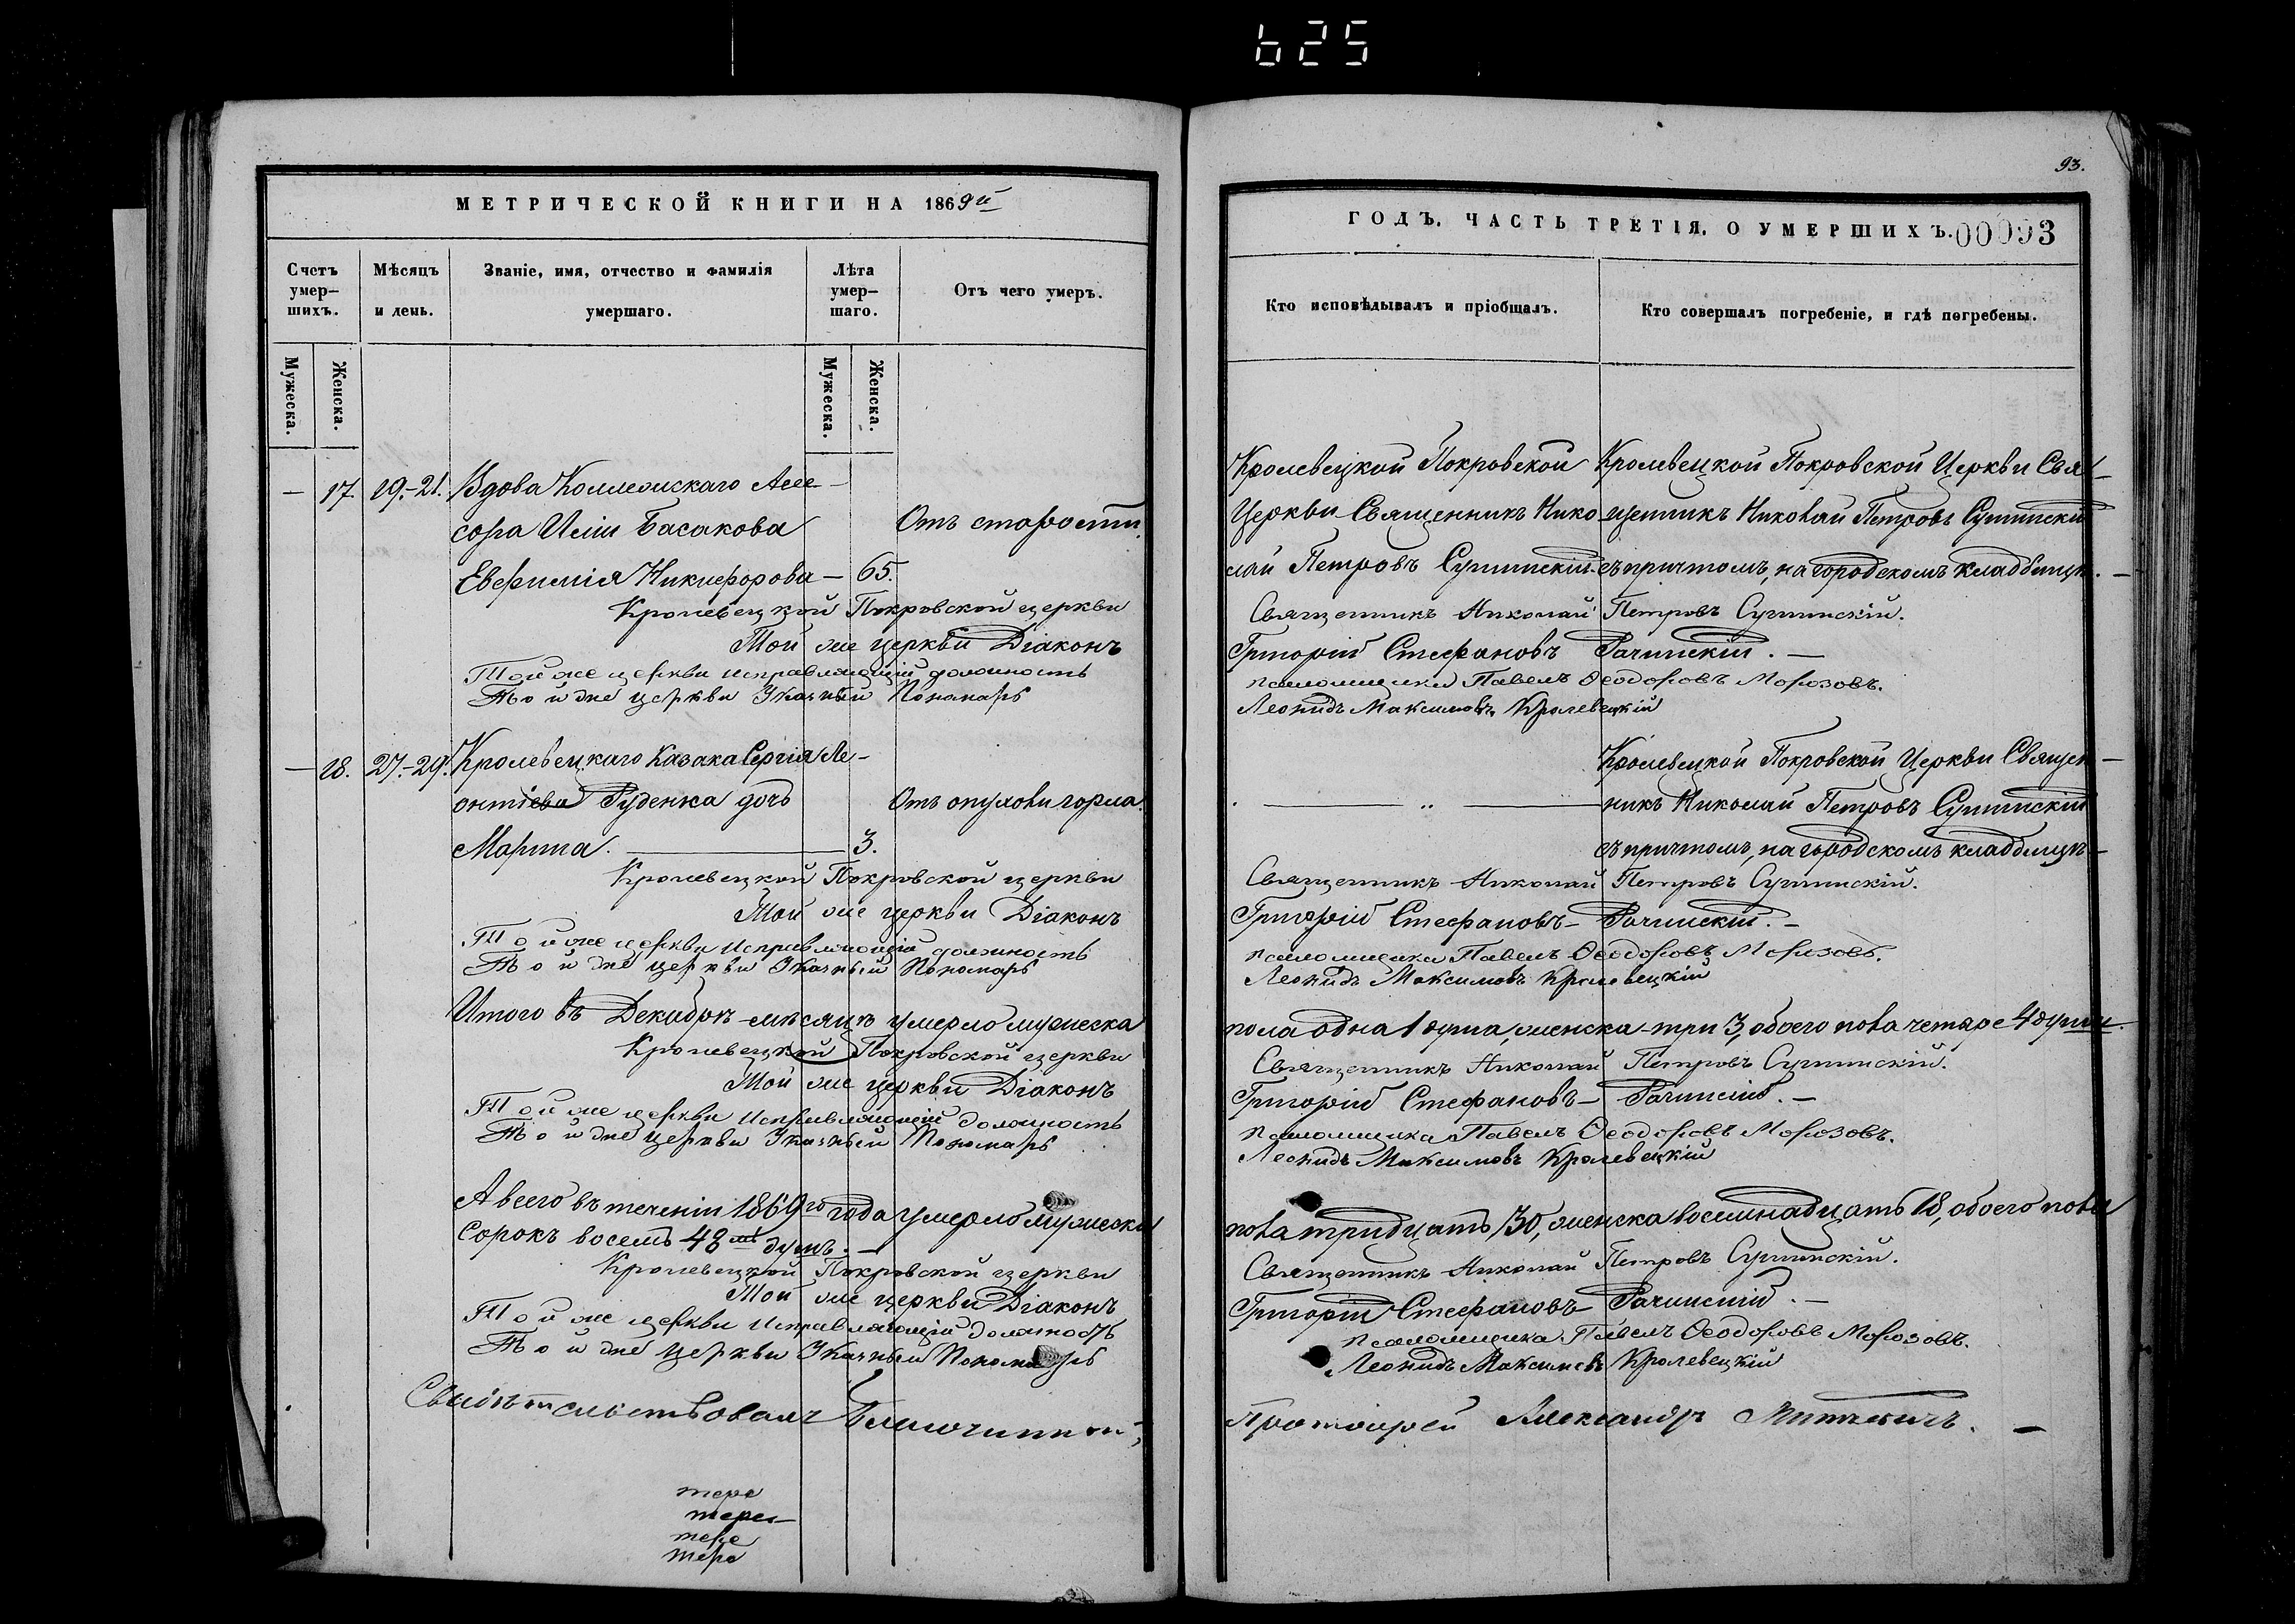 625
МЕТРИЧЕСКОЙ КНИГИ НА 1869й
Счетъ умер-шихъ.
Мѣсяцъ и день.
Званіе, имя, отчество и фамилія умершаго.
Лѣта умер-шаго.
Отъ чего умеръ.
Мужеска.
Женска.
Мужеска.
Женска.
— 17. 19.-21. Вдова Коллежскаго Асес-
сора Иліи Басакова Отъ старости.
Евфимія Никифорова — 65.
Кролевецкой Покровской церкви
Той же церкви Діаконъ
Той же церкви исправляющій должность
Той же церкви Указный Пономарь
— 18. 27.-29. Кролевецкаго Казака Сергія Ле-
онтіева Руденка дочь Отъ опухоли горла.
Марина. — 3.
Кролевецкой Покровской церкви
Той же церкви Діаконъ
Той же церкви исправляющій должность
Той же церкви Указный Пономарь
Итого въ Декабрѣ мѣсяцѣ умерло мужеска
Кролевецкой Покровской церкви
Той же церкви Діаконъ
Той же церкви исправляющій должность
Той же церкви Указный Пономарь
А всего въ теченіи 1869го года умерло мужеска
сорокъ восемь 48мь душъ. —
Кролевецкой Покровской церкви
Той же церкви Діаконъ
Той же церкви Исправляющій должность
Той же церкви Указный Пономарь
Свидѣтельствовалъ Благочинный,
93.
ГОДЪ. ЧАСТЬ ТРЕТІЯ. О УМЕРШИХЪ. 00093
Кто исповѣдывалъ и пріобщалъ.
Кто совершалъ погребеніе, и гдѣ погребены.
Кролевецкой Покровской Кролевецкой Покровской Церкви Свя-
Церкви Священникъ Нико- щенникъ Николай Петровъ
лай Петровъ съ причтомъ, на городскомъ кладбищѣ. —
Священникъ Николай Петровъ
Григорій Стефановъ Рачинскій. —
псаломщика Павелъ Ѳеодоровъ Морозовъ.
Леонидъ Максимовъ Кролевецкій
Кролевецкой Покровской Церкви Священ-
— „ — никъ Николай Петровъ
съ причтомъ, на городскомъ кладбищѣ —
Священникъ Николай Петровъ
Григорій Стефановъ — Рачинскій. —
псаломщика Павелъ Ѳеодоровъ Морозовъ.
Леонидъ Максимовъ Кролевецкій
пола одна 1 душа, женска — три 3, обоего пола четыре 4 души.
Священникъ Николай Петровъ
Григорій Стефановъ — Рачинскій. —
псаломщика Павелъ Ѳеодоровъ Морозовъ.
Леонидъ Максимовъ Кролевецкій
пола тридцать, 30, женска восемнадцать 18, обоего пола
Священникъ Николай Петровъ
Григорій Стефановъ — Рачинскій. —
псаломщика Павелъ Ѳеодоровъ Морозовъ.
Леонидъ Максимовъ Кролевецкій
Протоіерей Александръ —